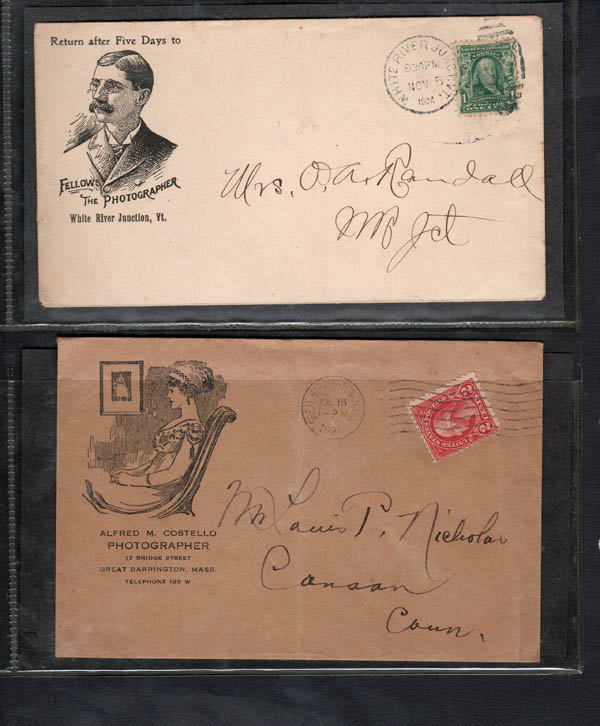 Return after Five Days to
FELLOWS
THE PHOTOGRAPHER
White River Junction, Vt.
WHITE RIVER JUNCT. VT.
630PM
NOV 5
1904
1
Mrs. O. A. Randall
Jct
ALFRED M. COSTELLO
PHOTOGRAPHER
17 BRIDGE STREET
GREAT BARRINGTON, MASS.
TELEPHONE 195 W
JUL 16
2
2
Mr Louis P. Nicholas
Canaan
Conn.